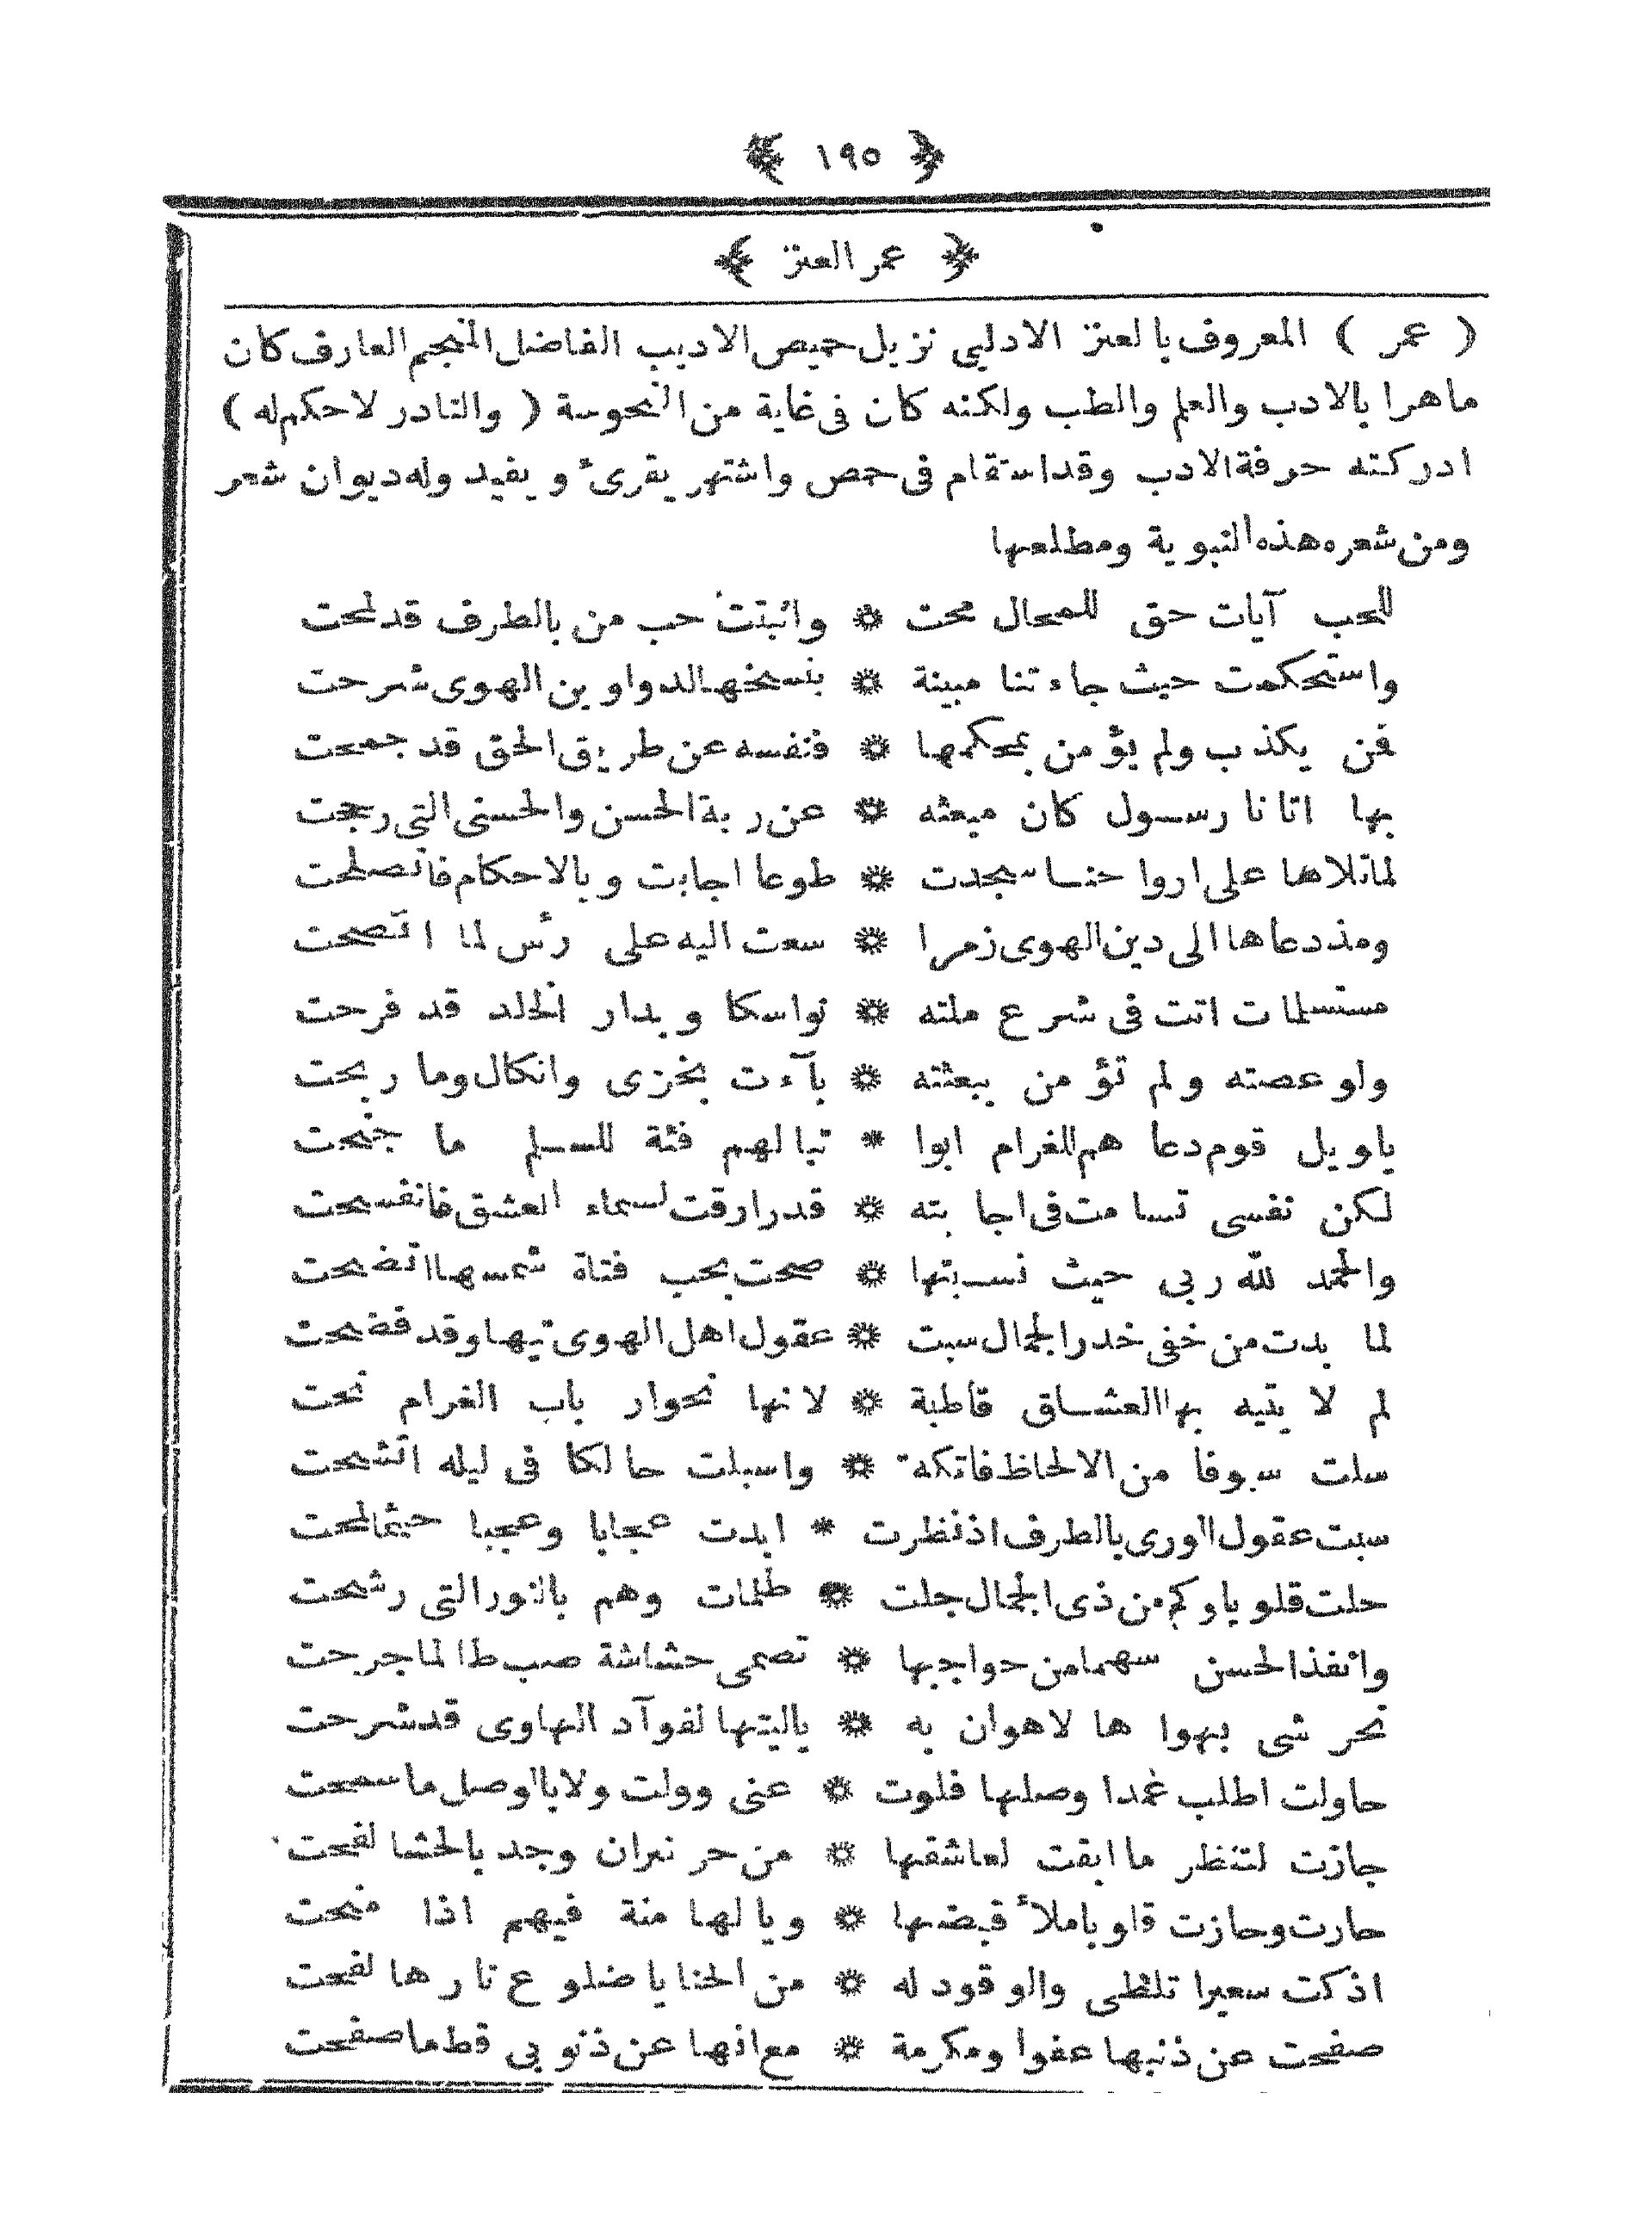 ﴿ ١٩٥ ﴾
﴿ عمر العنز ﴾
( عمر ) المعروف بالعنز الادلبى نزيل حميص الاديب الفاضل المنجم العارف كان
ماهرا بالادب والعلم والطب ولكنه كان فى غاية من النحوسة ( والنادر لا حكم له )
ادركته حرفة الادب وقد استقام فى حمص واشتهر يقرئ و يفيد وله ديوان شعر
ومن شعره هذه النبوية ومطلعها
للحب آيات حق للمحال محت * واثبتت حب من بالطرف قد لمحت
واستحكمت حيث جاءتنا مبينة * بنسخها لدواوين الهوى شرحت
فمن يكذب ولم يؤمن بمحكمها * فنفسه عن طريق الحق قد جمحت
بها اتانا رسول كان مبعثه * عن ربة الحسن والحسنى التى رجحت
لما تلاها على ارواحنا سجدت * طوعا اجابت وبالاحكام فاتصلحت
ومذ دعاها الى دين الهوى زمرا * سعت اليه على رأس لما اتضحت
مستسلمات اتت فى شرع ملته * نواسكا وبدار الخلد قد فرحت
ولو عصته ولم تؤمن ببعثته * بآءت بخزى وانكال وما ربحت
ياويل قوم دعاهم للغرام ابوا * تبا لهم فئة للسلم ما جنحت
لكن نفسى تسامت فى اجابته * قد را رقت لسماء العشق فانفسحت
والحمد لله ربى حيث نسبتها * صحت بحب فتاة شمسها اتضحت
لما بدت من خفى خدر الجمال سبت * عقول اهل الهوى تيها وقد فضحت
لم لا يتيه بها العشاق قاطبة * لانها نحوار باب الغرام نحت
سلت سيوفا من الالحاظ فاتكة * واسبلت حالكا فى ليله اتشحت
سبت عقول الورى بالطرف اذ نظرت * ابدت عجابا وعجبا حيثما لمحت
حلت قلوبا وكم من ذى الجمال جلت * ظلمات وهم بالنور التى رشحت
وانفذ الحسن سهما من حواجبها * تصمى حشاشة صب طالما جرحت
تحر شى بهواها لاهوان به * ياليتها لفوآد الهاوى قد شرحت
حاولت اطلب غمدا وصلها فلوت * عنى وولت ولا بالوصل ما سمحت
جازت لتنظر ما ابقت لعاشقها * من حر نيران وجد بالحشا لفحت
حارت وحازت قلوبا ملأ قبضتها * ويالها منة فيهم اذا منحت
اذكت سعيرا تلظى والوقود له * من الحنايا ضلوع نارها لفحت
صفحت عن ذنبها عفوا ومكرمة * مع انها عن ذنوبى قط ما صفحت